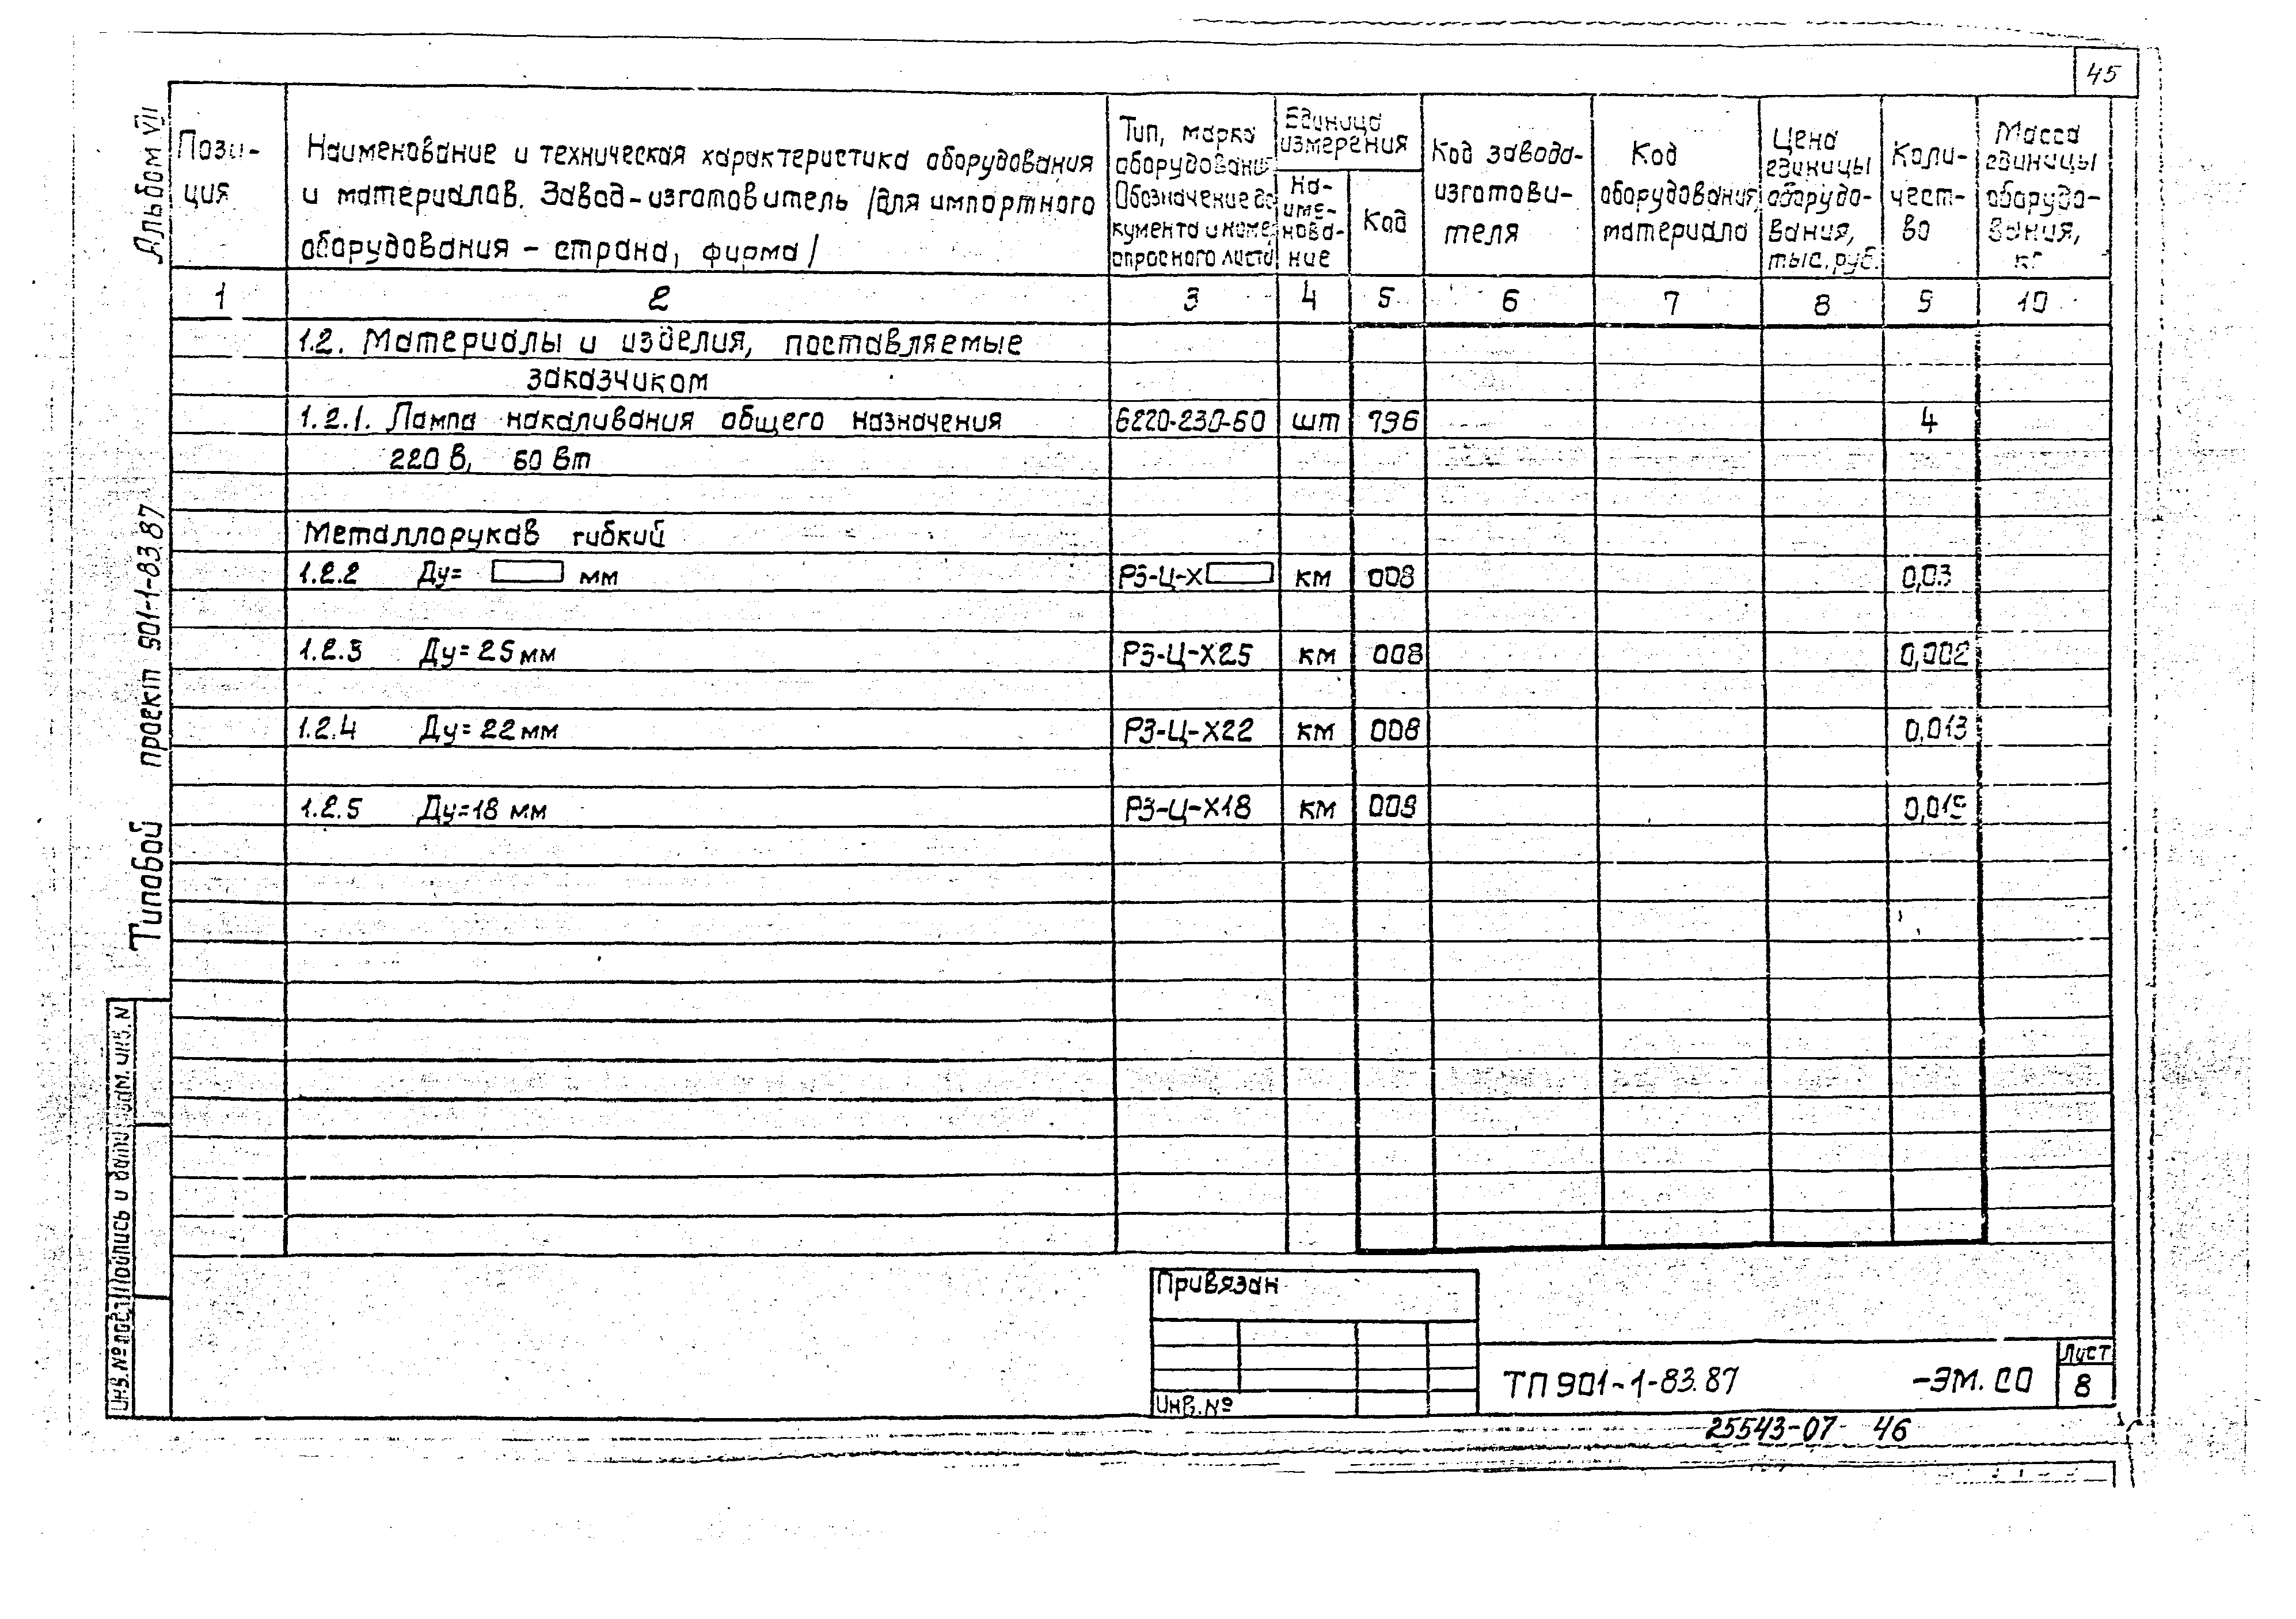 45
Альбом VII
Типовой проект 901-1-83.87
Пози-
ция
Наименование и техническая характеристика оборудования
и материалов. Завод-изготовитель /для импортного
оборудования - страна, фирма/
Тип, марка
оборудования
Обозначение до
кумента и номер
опросного листа
Единица
измерения
На-
име-
нова-
ние
Код
Код завода-
изготови-
теля
Код
оборудования,
материала
Цена
единицы
оборудо-
вания,
тыс. руб.
Коли-
чест-
во
Масса
единицы
оборудо-
вания,
кг
1 2 3 4 5 6 7 8 9 10
1.2. Материалы и изделия, поставляемые
заказчиком
1.2.1. Лампа накаливания общего назначения Б220-230-60 шт 796 4
220 В, 60 Вт
Металлорукав гибкий
1.2.2 Ду= мм РЗ-Ц-Х км 008 0,03
1.2.3 Ду=25 мм РЗ-Ц-Х25 км 008 0,002
1.2.4 Ду=22 мм РЗ-Ц-Х22 км 008 0,013
1.2.5 Ду=18 мм РЗ-Ц-Х18 км 008
Инв. № подл. Подпись и дата Взам. инв. N
Привязан
Инв. №
ТП 901-1-83.87 -ЭМ.СО
Лист
8
25543-07 46